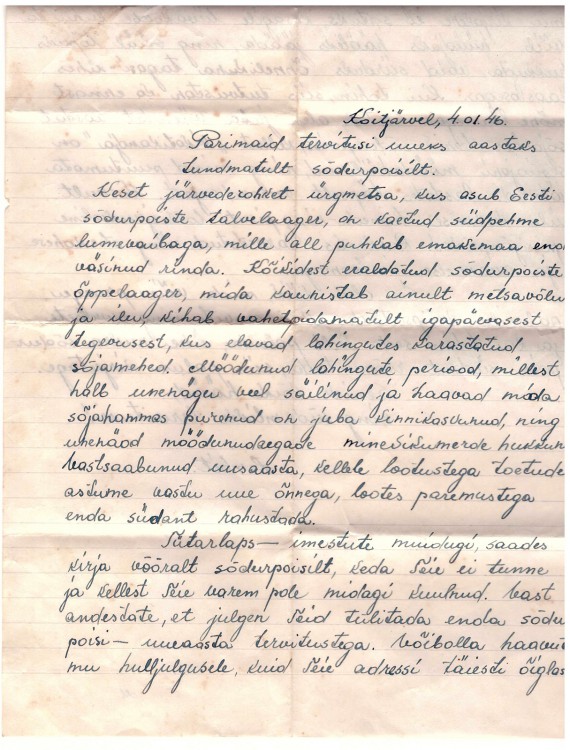 Koitjärvel, 4.01.46.
Parimaid tervitusi uueks aastaks
tundmatult sõdurpoisilt.
Keset järvederohket ürgmetsa, kus asub Eesti
sõdurpoiste talvelaager, on kaetud siidpehme
lumevaibaga, mille all puhkab emakemaa end
väsinud rinda. Kõikidest eraldatud sõdurpoiste
õppelaager, mida kaunistab ainult metsavõlu
ja ilu kihab vahetpidamatult igapäevasest
tegevusest, kus elavad lahingutes karastatud
sõjamehed. Möödunud lahingute periood, millest
halb unenägu veel säilinud ja haavad mida
sõjahammas purenud on juba kinnikasvanud, ning
unenäod möödunudaegade minevikumerde hukkun
Vastsaabunud uusaasta, kellele lootustega toetude
astume vastu uue õnnega, lootes paremustega
enda südant rahustada.
Tütarlaps — imestute muidugi, saades
kirja võõralt sõdurpoisilt, keda Teie ei tunne
ja kellest Teie varem pole midagi kuulnud. Vast
andestate, et julgen Teid tülitada enda sõdu
poisi — uueaasta tervitustega. Võibolla haavut
mu hulljulgusele, kuid Teie adressi täiesti õiglas